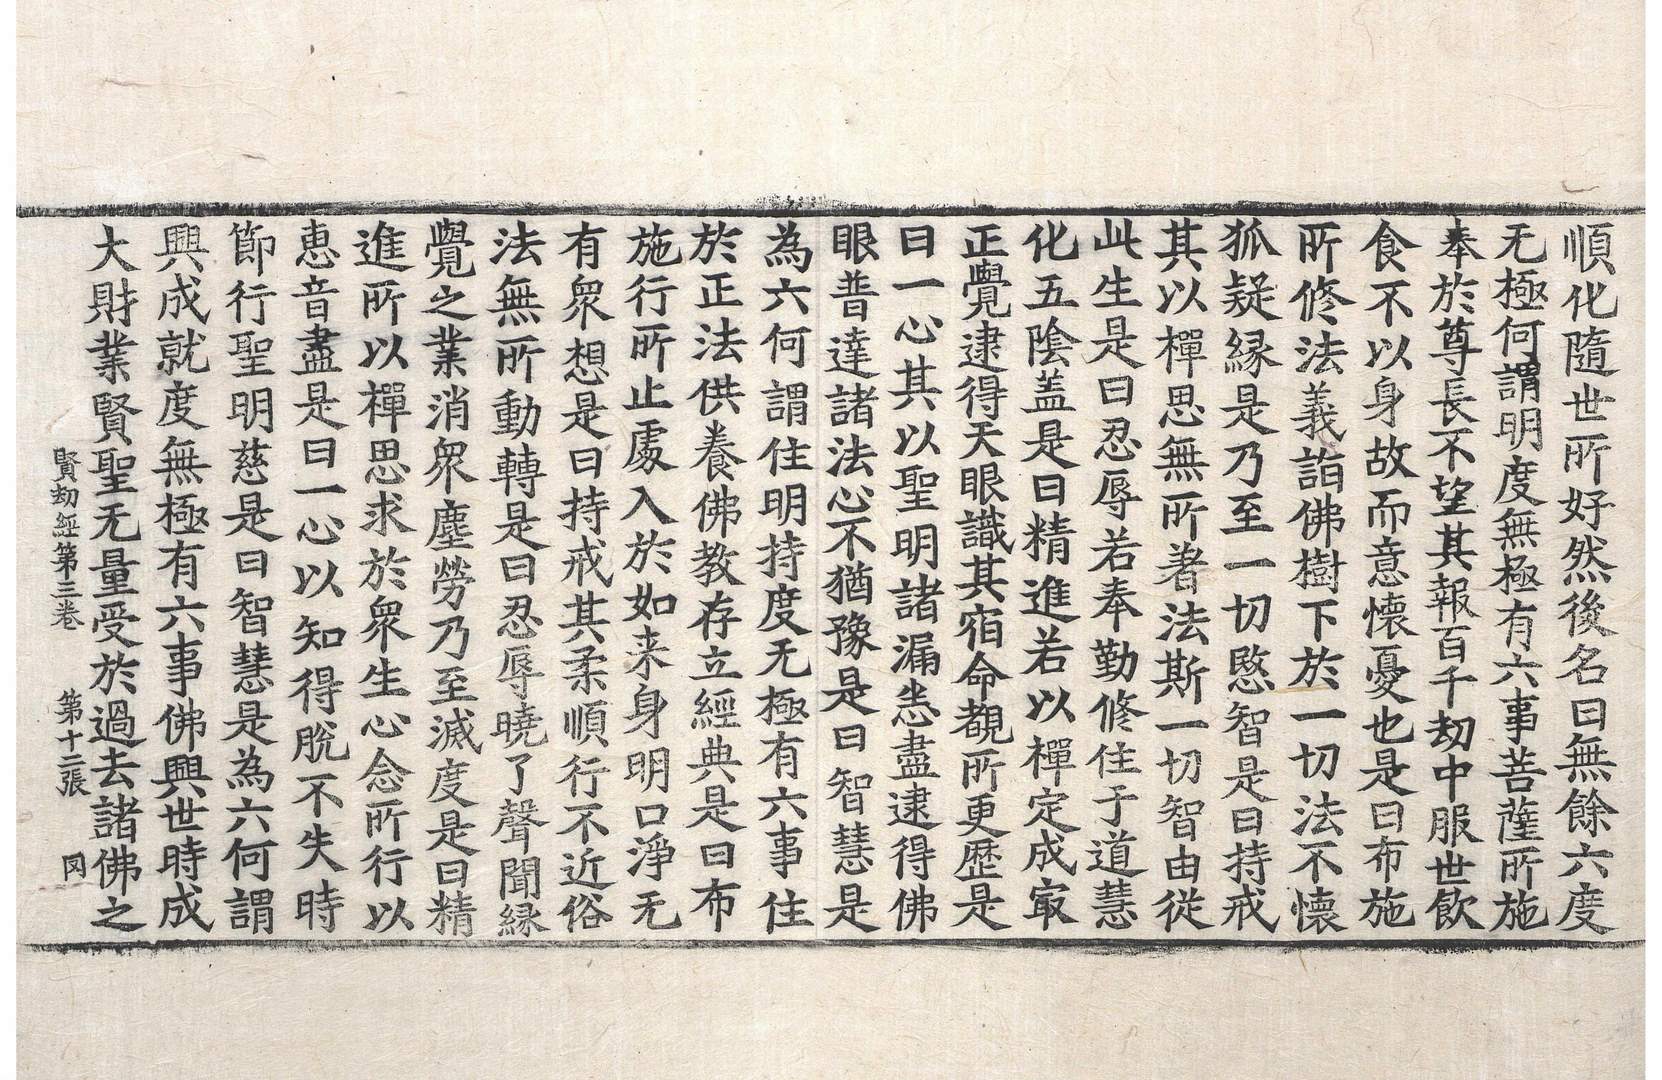 順化隨世所好然後名曰無餘六度
无極何謂明度無極有六事菩薩所施
奉於尊長不望其報百千劫中服世飲
食不以身故而意懷憂也是曰布施
所修法義詣佛樹下於一切法不懷
狐疑縁是乃至一切愍智是曰持戒
其以禪思無所著法斯一切智由從
此生是曰忍辱若奉勤修住于道慧
化五陰盖是曰精進若以禪定成㝡
正覺逮得天眼識其宿命覩所更歷是
曰一心其以聖明諸漏悉盡逮得佛
眼普達諸法心不猶豫是曰智慧是
為六何謂住明持度无極有六事住
於正法供養佛教存立經典是曰布
施行所止處入於如来身明口淨无
有衆想是曰持戒其柔順行不近俗
法無所動轉是曰忍辱曉了聲聞縁
覺之業消衆塵勞乃至滅度是曰精
進所以禪思求於衆生心念所行以
恵音盡是曰一心以知得脫不失時
節行聖明慈是曰智慧是為六何謂
興成就度無極有六事佛興世時成
大財業賢聖无量受於過去諸佛之
賢劫經第三卷　第十二張　罔